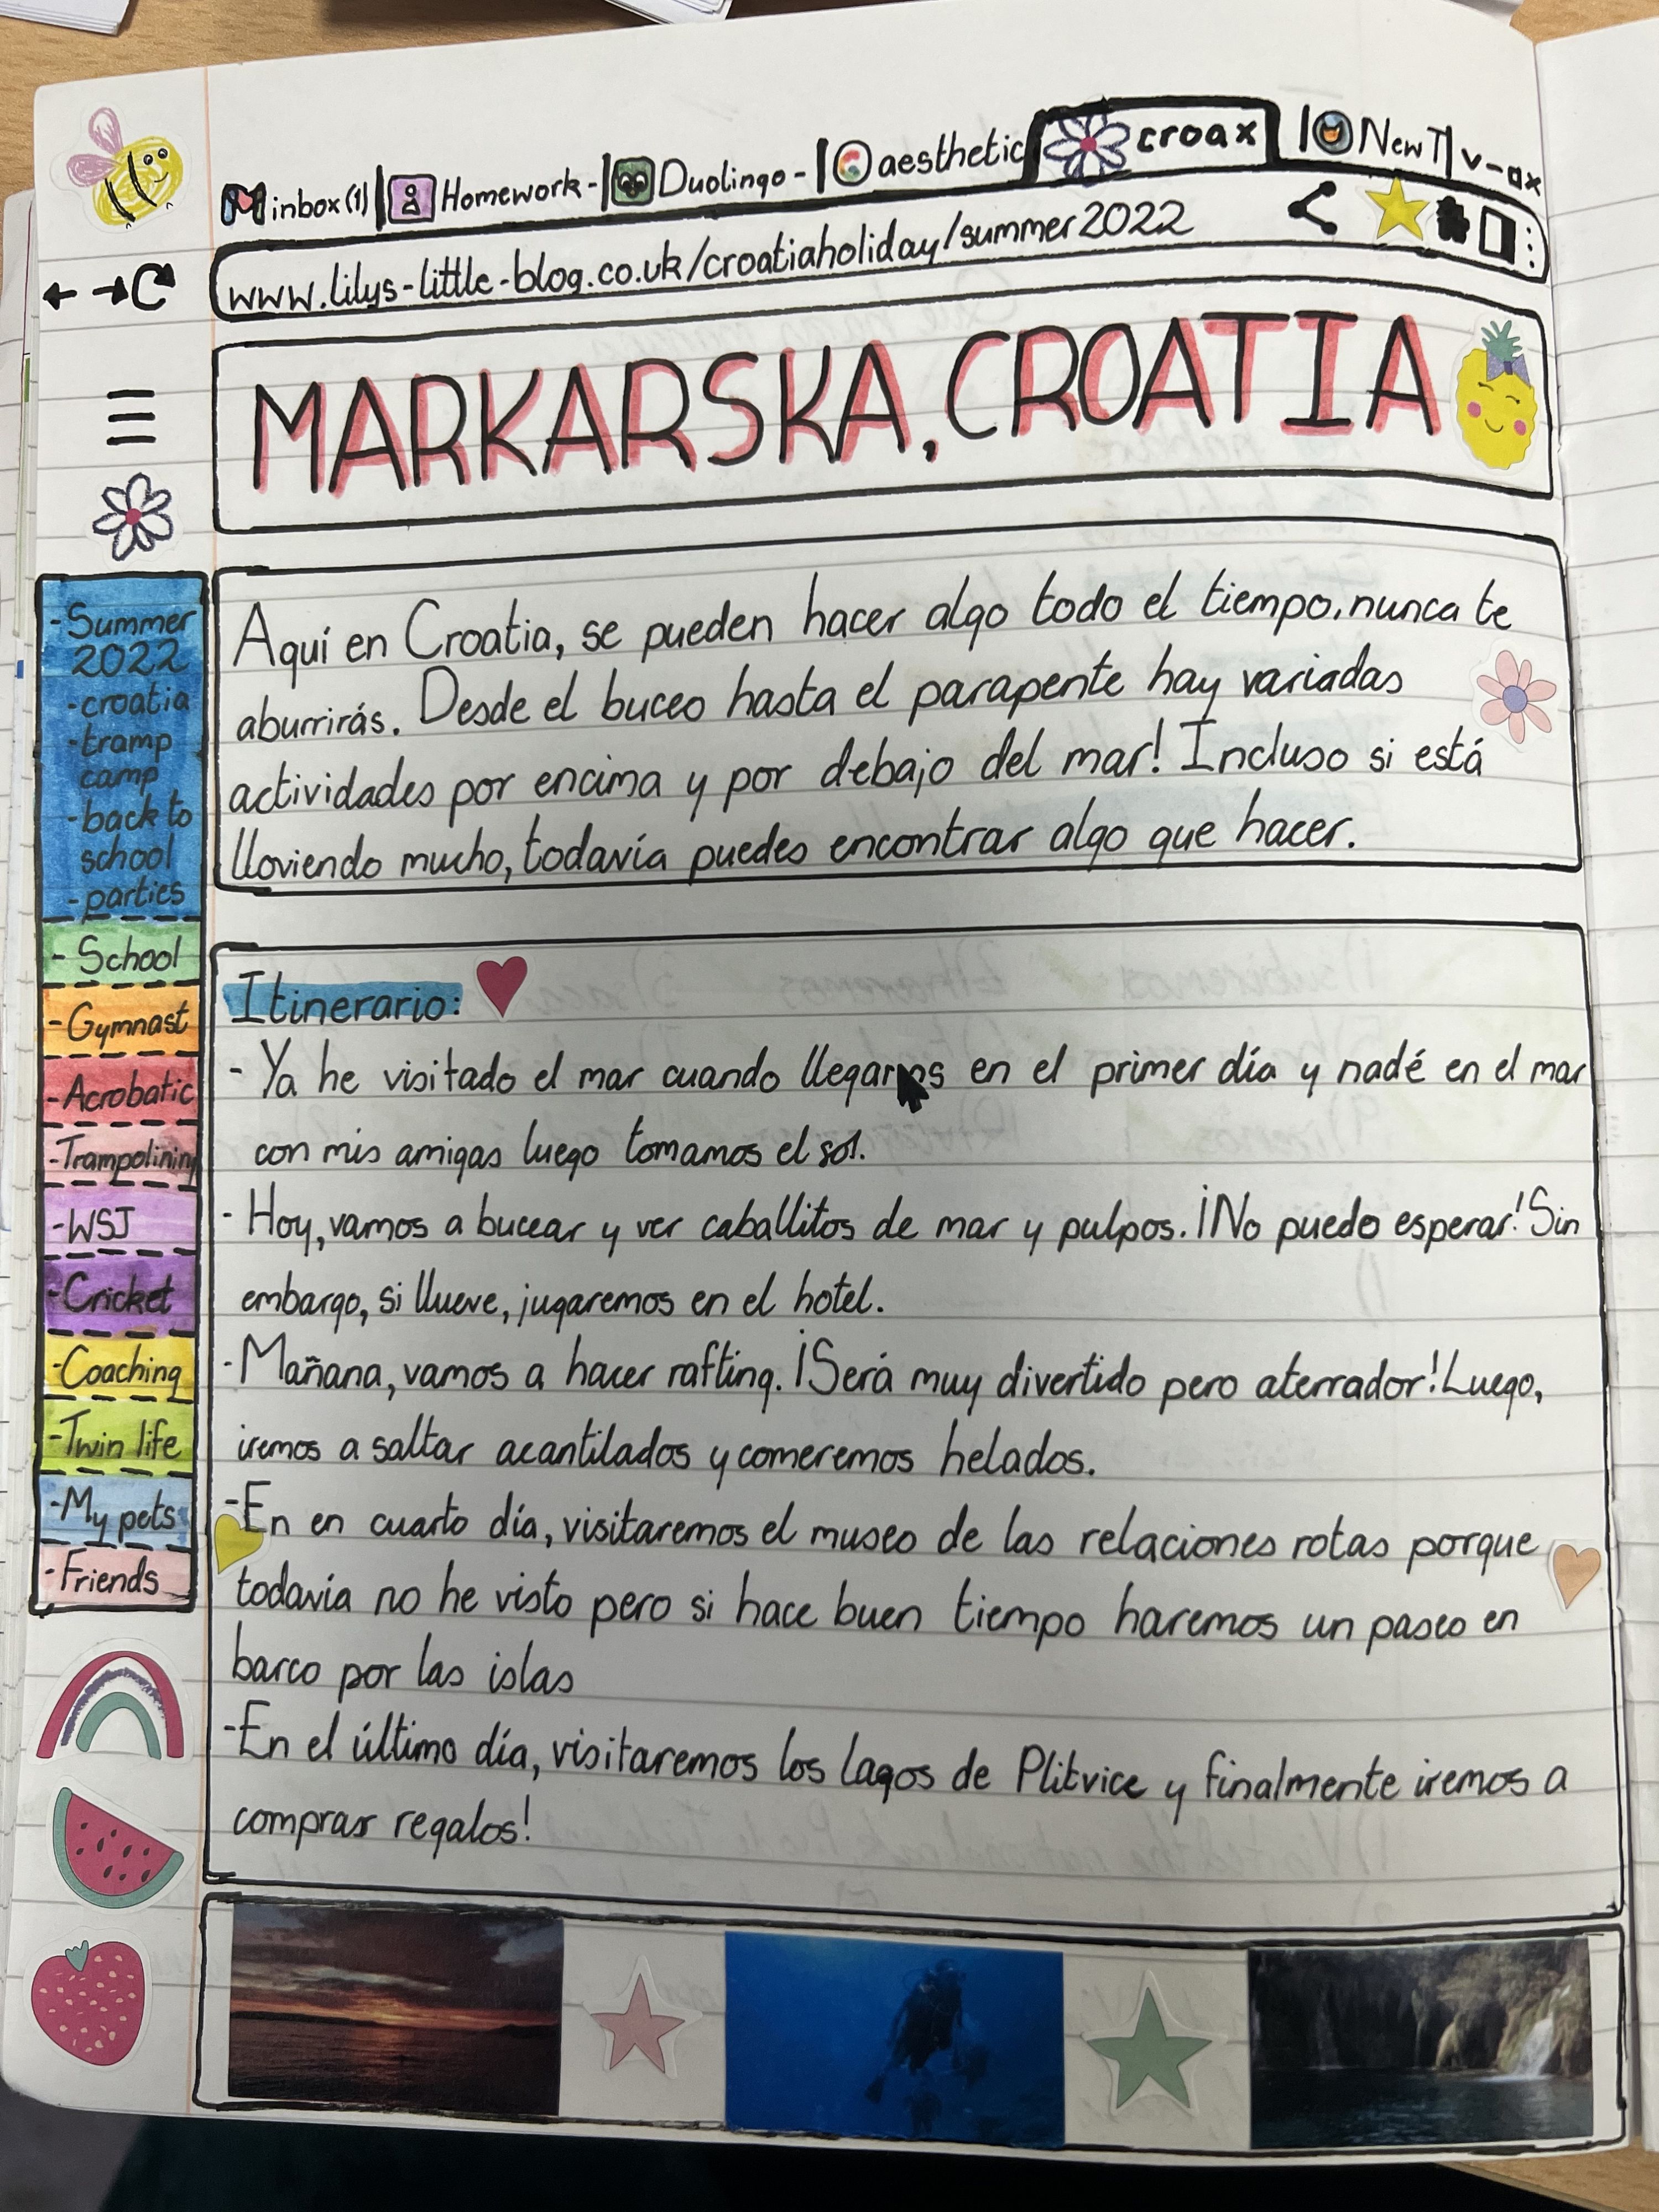 inbox(1) | Homework - | Duolingo - | aesthetic croax | NewT| v-ax
www.lilys-little-blog.co.uk/croatiaholiday/summer2022
MARKARSKA, CROATIA
Aquí en Croatia, se pueden hacer algo todo el tiempo, nunca te
aburrirás. Desde el buceo hasta el parapente hay variadas
actividades por encima y por debajo del mar! Incluso si está
lloviendo mucho, todavía puedes encontrar algo que hacer.
- Summer
2022
- croatia
- tramp
camp
- back to
school
- parties
- School
- Gymnast
- Acrobatic
- Trampolining
- WSJ
- Cricket
- Coaching
- Twin life
- My pets
- Friends
Itinerario:
- Ya he visitado el mar cuando llegamos en el primer día y nadé en el mar
con mis amigas luego tomamos el sol.
- Hoy, vamos a bucear y ver caballitos de mar y pulpos. ¡No puedo esperar! Sin
embargo, si llueve, jugaremos en el hotel.
- Mañana, vamos a hacer rafting. ¡Será muy divertido pero aterrador! Luego,
iremos a saltar acantilados y comeremos helados.
- En en cuarto día, visitaremos el museo de las relaciones rotas porque
todavía no he visto pero si hace buen tiempo haremos un paseo en
barco por las islas
- En el último día, visitaremos los lagos de Plitvice y finalmente iremos a
comprar regalos!